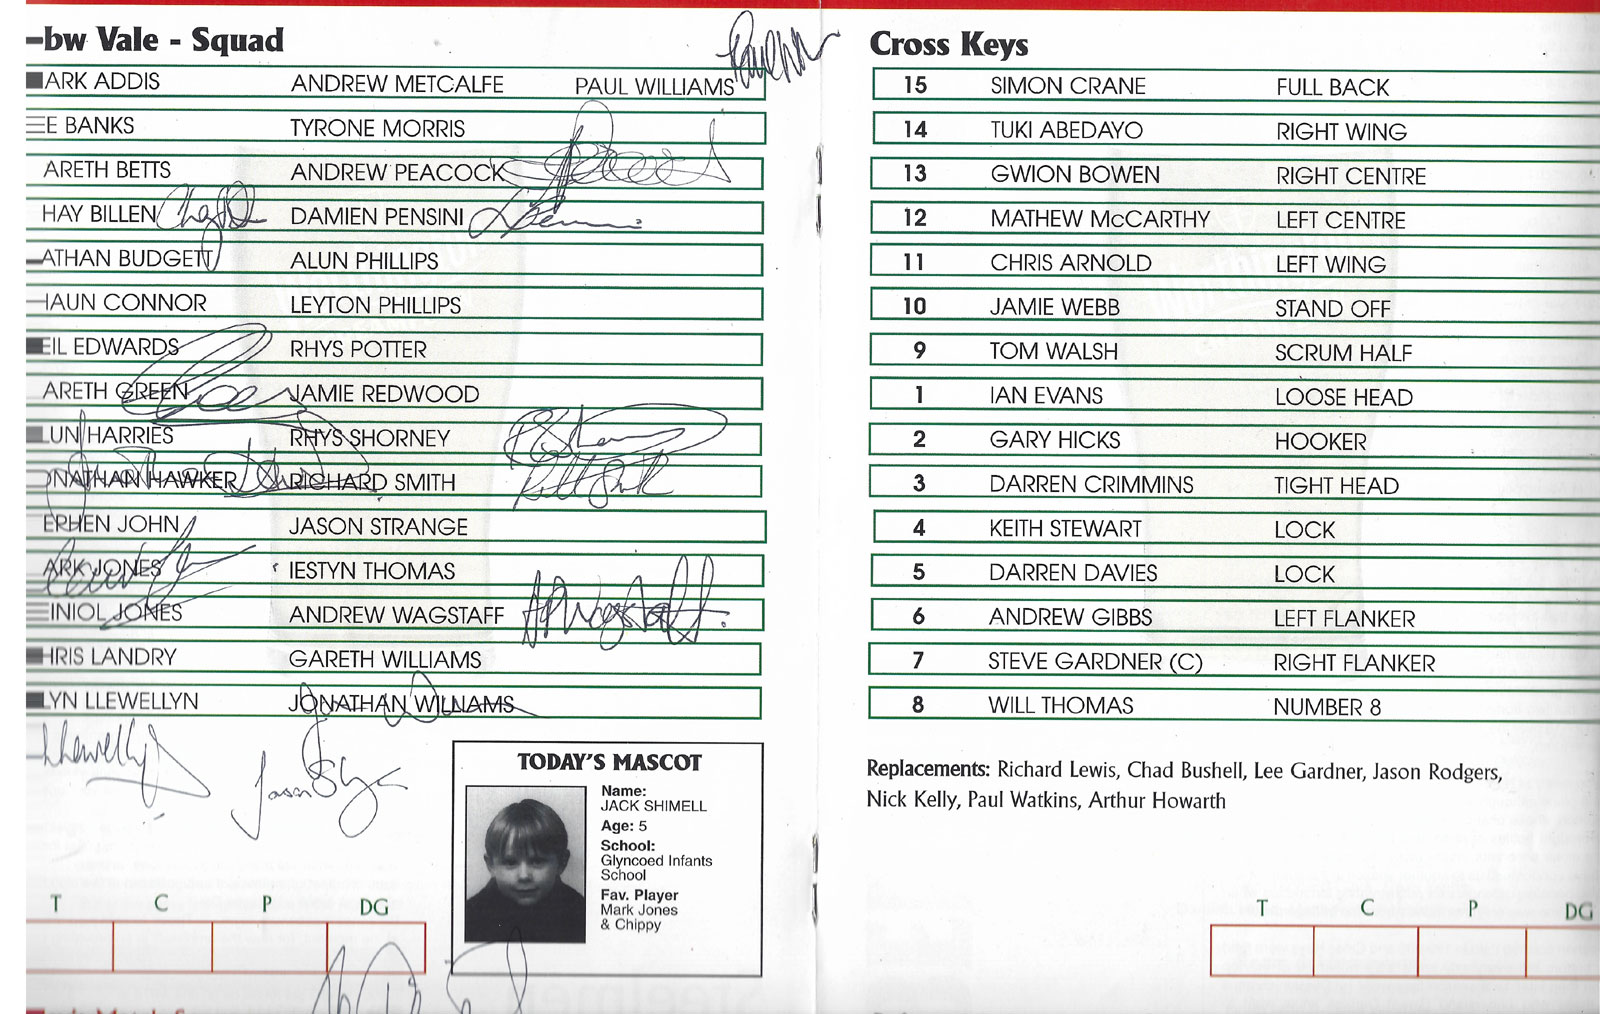 bw Vale - Squad
ARK ADDIS ANDREW METCALFE PAUL WILLIAMS
E BANKS TYRONE MORRIS
ARETH BETTS ANDREW PEACOCK
HAY BILLEN DAMIEN PENSINI
ATHAN BUDGETT ALUN PHILLIPS
HAUN CONNOR LEYTON PHILLIPS
EIL EDWARDS RHYS POTTER
ARETH GREEN JAMIE REDWOOD
LUN HARRIES RHYS SHORNEY
ONATHAN HAWKER RICHARD SMITH
EPHEN JOHN JASON STRANGE
ARK JONES IESTYN THOMAS
EINIOL JONES ANDREW WAGSTAFF
HRIS LANDRY GARETH WILLIAMS
LYN LLEWELLYN JONATHAN WILLIAMS
Llewellyn
Jason
TODAY'S MASCOT
Name:
JACK SHIMELL
Age: 5
School:
Glyncoed Infants
School
Fav. Player
Mark Jones
& Chippy
T C P DG
Cross Keys
15 SIMON CRANE FULL BACK
14 TUKI ABEDAYO RIGHT WING
13 GWION BOWEN RIGHT CENTRE
12 MATHEW McCARTHY LEFT CENTRE
11 CHRIS ARNOLD LEFT WING
10 JAMIE WEBB STAND OFF
9 TOM WALSH SCRUM HALF
1 IAN EVANS LOOSE HEAD
2 GARY HICKS HOOKER
3 DARREN CRIMMINS TIGHT HEAD
4 KEITH STEWART LOCK
5 DARREN DAVIES LOCK
6 ANDREW GIBBS LEFT FLANKER
7 STEVE GARDNER (C) RIGHT FLANKER
8 WILL THOMAS NUMBER 8
Replacements: Richard Lewis, Chad Bushell, Lee Gardner, Jason Rodgers,
Nick Kelly, Paul Watkins, Arthur Howarth
T C P DG